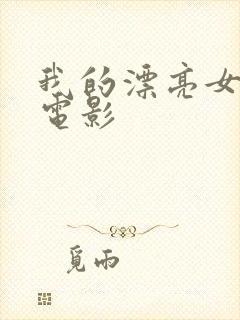 我的漂亮女
電影
覓雨